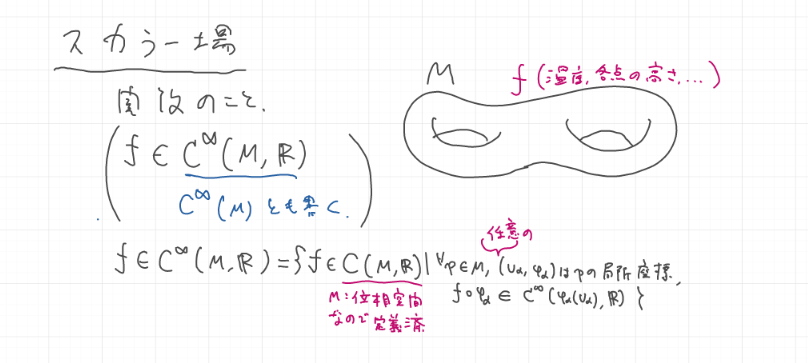 スカラー場
関数のこと.
(f ∈ C^∞(M, ℝ))
C^∞(M) とも書く.
M
f (温度, 各点の高さ, ...)
任意の
f ∈ C^∞(M, ℝ) = {f ∈ C(M, ℝ) | ∀p ∈ M, (U_α, φ_α) は p の局所座標,
f∘φ_α ∈ C^∞(φ_α(U_α), ℝ) }
M : 位相空間
なので定義済